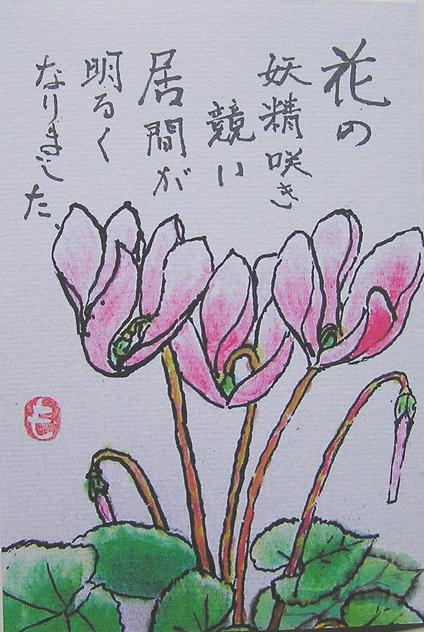 花の
妖精咲き
競い
居間が
明るく
なりました、